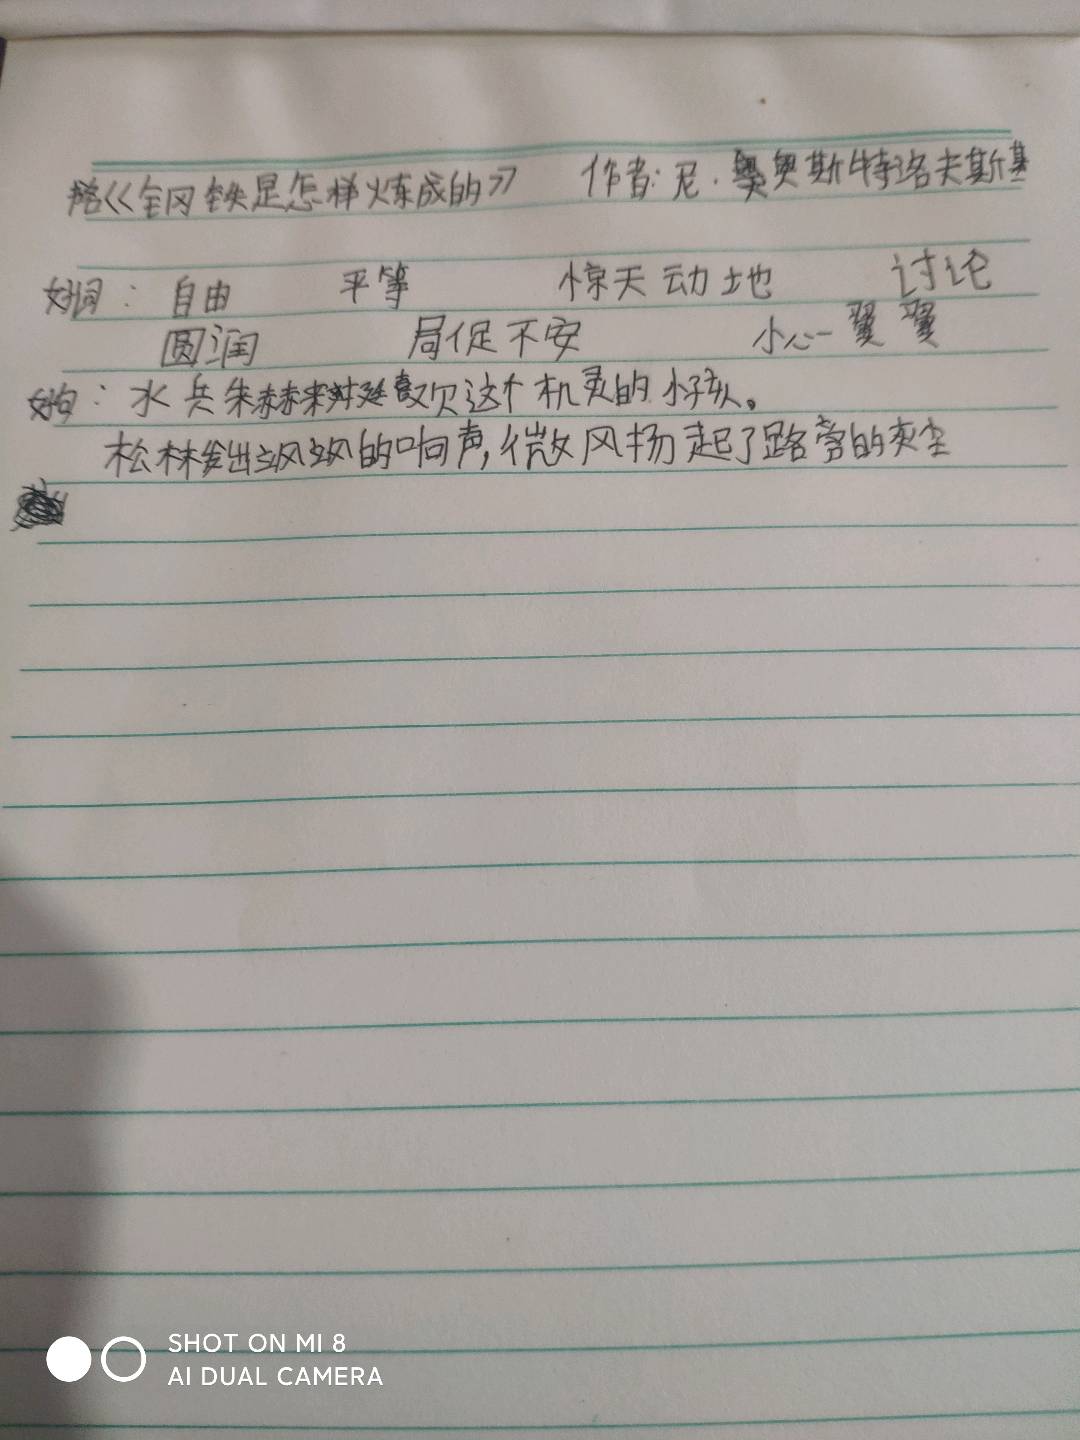 书名《钢铁是怎样炼成的》 作者:尼·奥斯特洛夫斯基
好词: 自由 平等 惊天动地 讨论
圆润 局促不安 小心翼翼
好句: 水兵朱赫来对喜欢这个机灵的小孩。
松林发出飒飒的响声,微风扬起了路旁的灰尘
SHOT ON MI 8
AI DUAL CAMERA